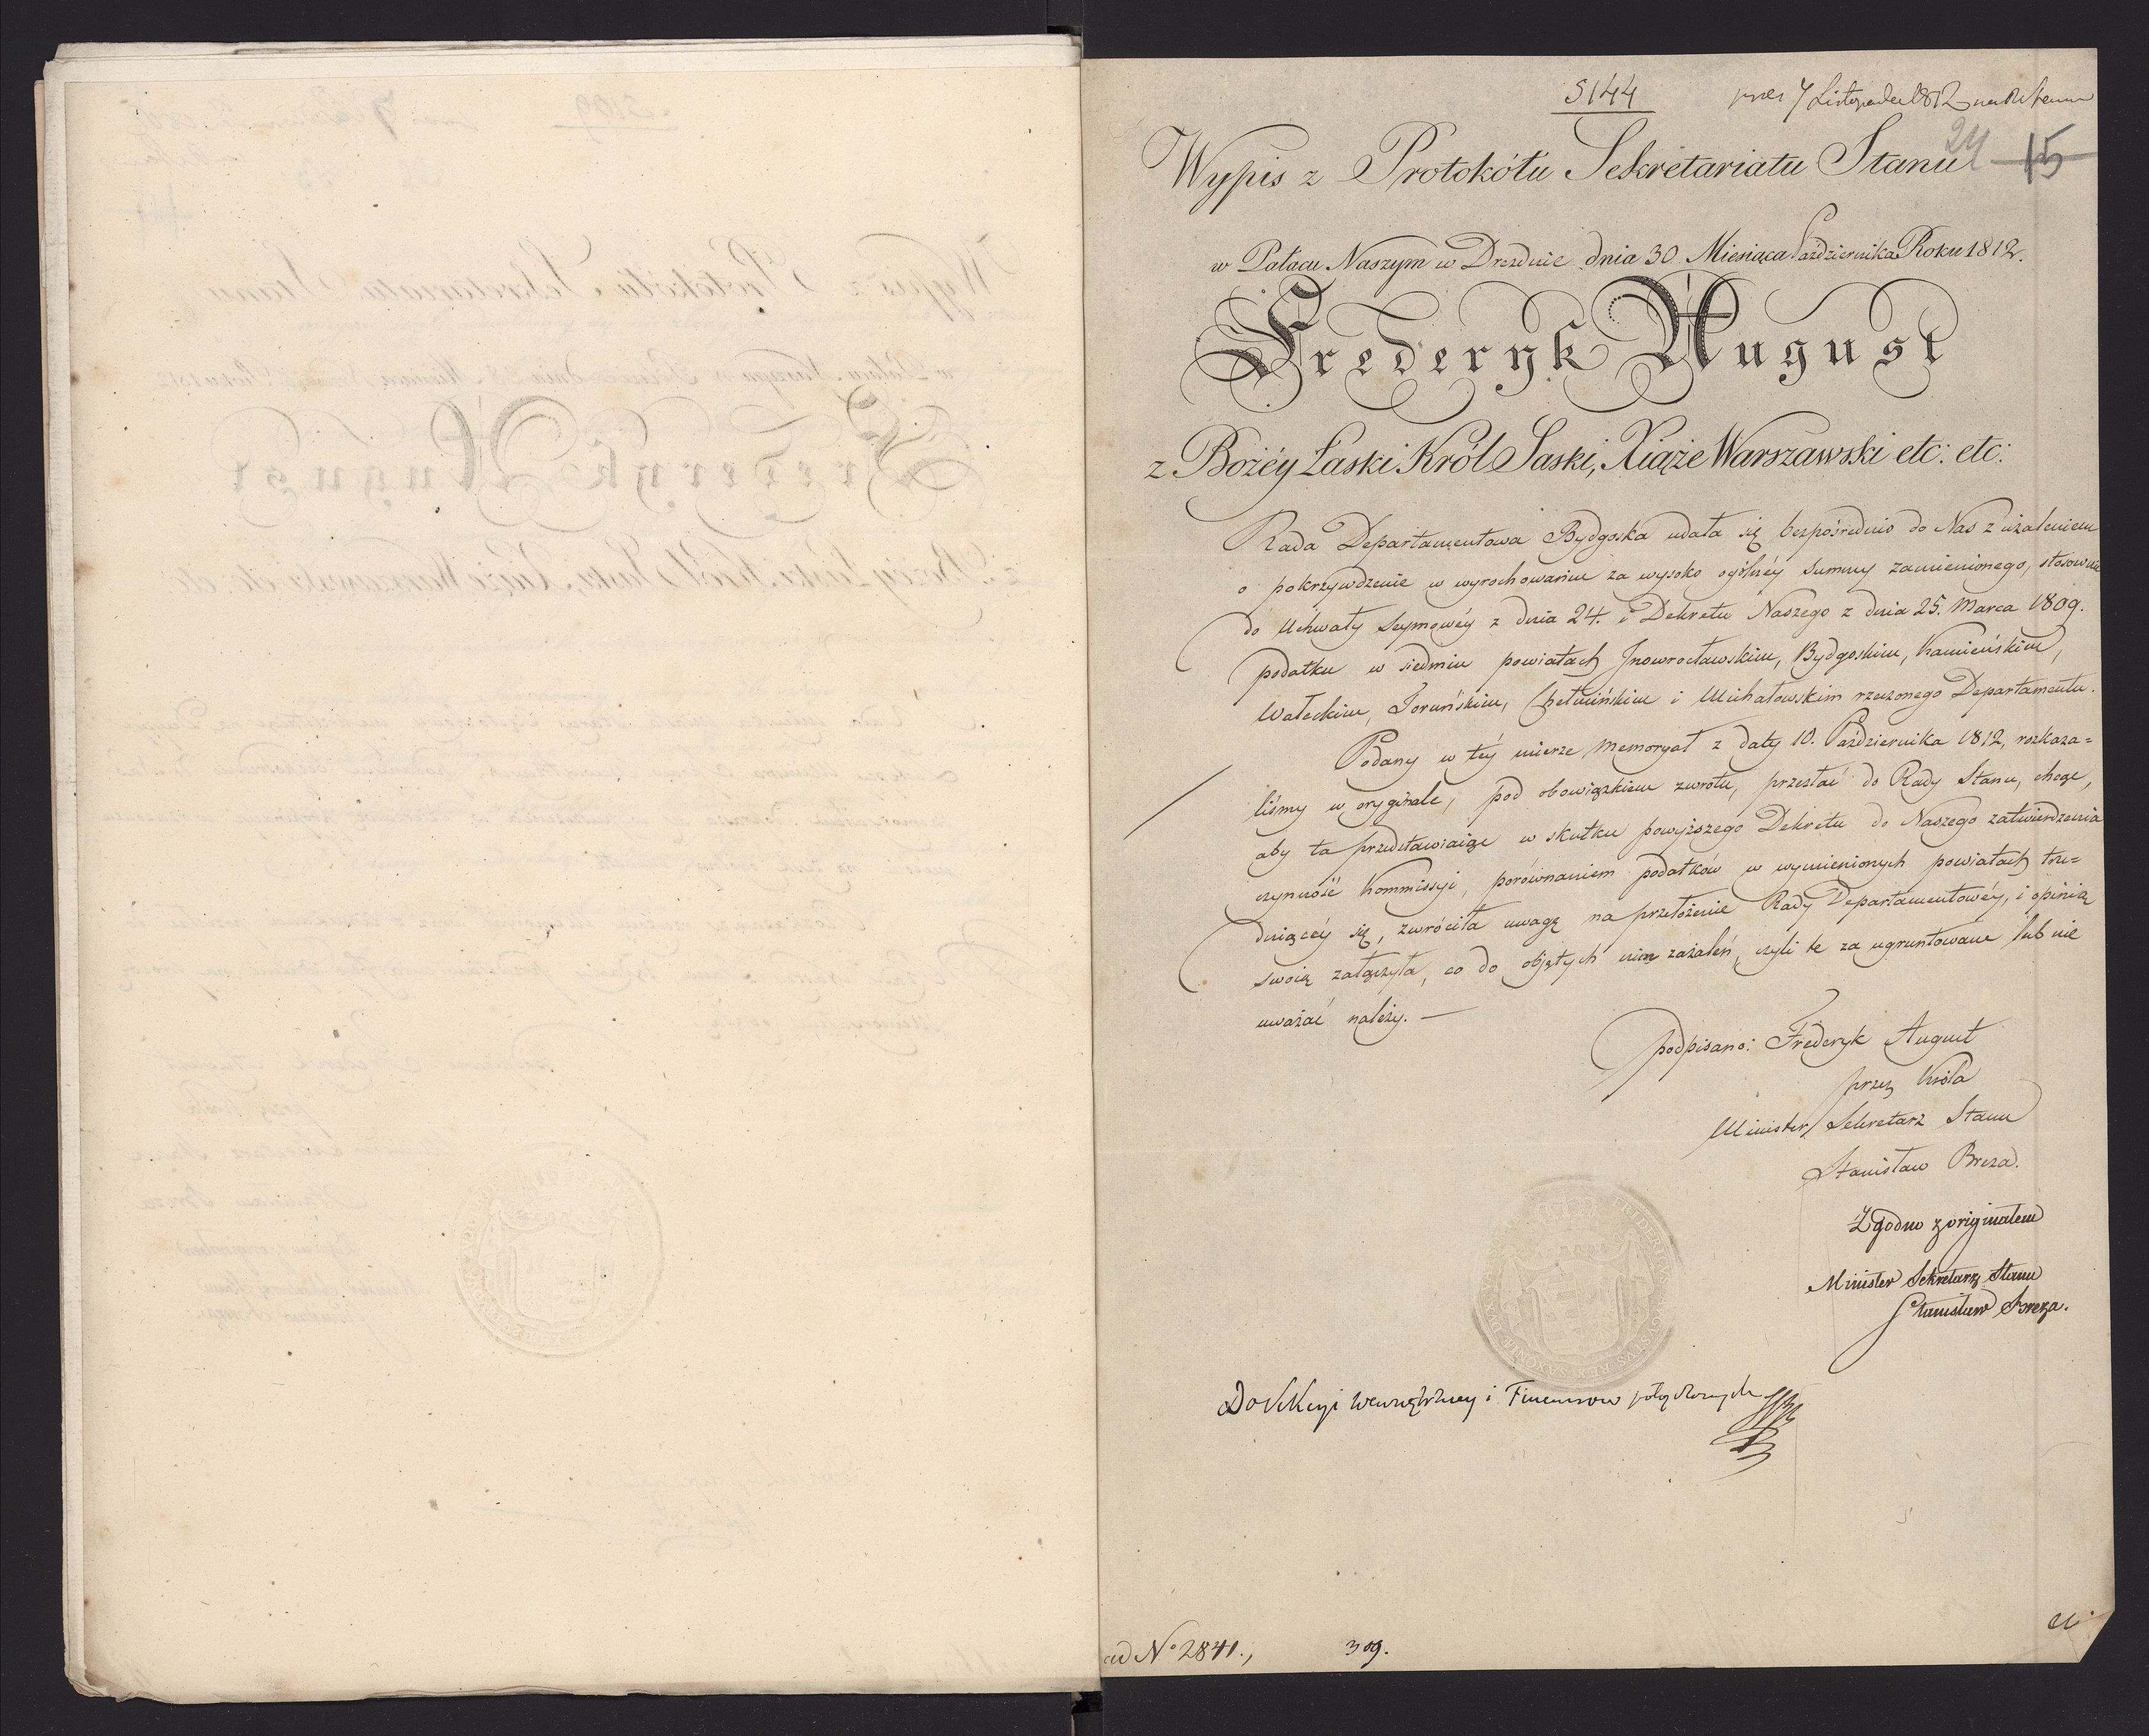 5144
7 Listopada 1812
Wypis z Protokółu Sekretariatu Stanu
24 15
w Pałacu Naszym w Dreznie dnia 30 Miesiąca Października Roku 1812.
Frederyk August
z Bożéy Łaski Król Saski, Xiąże Warszawski etc: etc:
Rada Departamentowa Bydgoska udała się bezpośrednio do Nas z użaleniem
o pokrzywdzenie w wyrochowaniu za wysoko ogólnéy summy zamienionego, stosownie
do Uchwały Seymowéy z dnia 24. i Dekretu Naszego z dnia 25. Marca 1809.
podatku w siedmiu powiatach Jnowrocławskim, Bydgoskim, Kamieńskim,
Wałeckim, Toruńskim, Chełmińskim i Michałowskim rzeczonego Departamentu.
Podany w téy mierze memoryał z daty 10. Października 1812, rozkaza=
liśmy w oryginale, pod obowiązkiem zwrotu, przesłać do Rady Stanu, chcąc,
aby ta przedstawiaiąc w skutku powyższego Dekretu do Naszego zatwierdzenia
czynność Kommissyi, porównaniem podatków w wymienionych powiatach tru=
dniącéy się, zwróciła uwagę na przełożenie Rady Departamentowéy, i opinią
swoią załączyła, co do objętych nim zażaleń, czyli te za ugruntowane lub nie
uważać należy. —
podpisano: Fryderyk August
przez Króla
Minister Sekretarz Stanu
Stanisław Breza.
Zgodno z oryginałem
Minister Sekretarz Stanu
Stanisław Breza.
Do Sekcyi Wewnętrzney i Finansow połączonych
ad No 2841., 309.